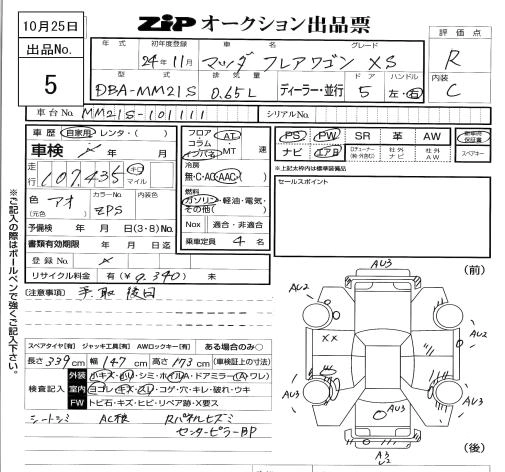 10月25日
ZIP オークション出品票
出品No.
5
評価点
R
内装
C
年式 初年度登録 車名 グレード
24年11月 マツダ フレアワゴン XS
型式 排気量 ドア ハンドル
DBA-MM21S 0.65L ディーラー・並行 5 左・右
車台No. MM21S-101111 シリアルNo.
車歴 自家用・レンタ・( )
車検 年 月
走行 107,435 キロ マイル
色 アオ (元色) カラーNo. ZPS 内装色
予備検 年 月 日(3・8)No.
書類有効期限 年 月 日迄
登録No.
リサイクル料金 有(¥9,340) 未
フロア コラム インパネ AT MT 速
冷房
無・C・AC・AAC・( )
燃料
ガソリン・軽油・電気・その他( )
Nox 適合・非適合
乗車定員 4 名
PS PW SR 革 AW 保証書
ナビ エアB 社外ナビ 社外AW スペアキー
※上記太枠内は標準装備品
セールスポイント
※ご記入の際はボールペンで強くご記入下さい。
(注意事項) 手取後日
スペアタイヤ[有] ジャッキ工具[有] AWロックキー[有] ある場合のみ○
長さ339cm 幅147cm 高さ173cm (車検証上の寸法)
検査記入
外装 小キズ・凹・シミ・ホイルA・ドアミラー(A・ワレ)
室内 ヨゴレ・キズ・スリ・コゲ・穴・キレ・破れ・ウキ
FW トビ石・キズ・ヒビ・リペア跡・X要ス
シートシミ AC検 Rパネルヒズミ
センターピラーBP
(前)
AU3
AU2
AU2
XX
AU3
AU3
AU3
A3
U2
(後)